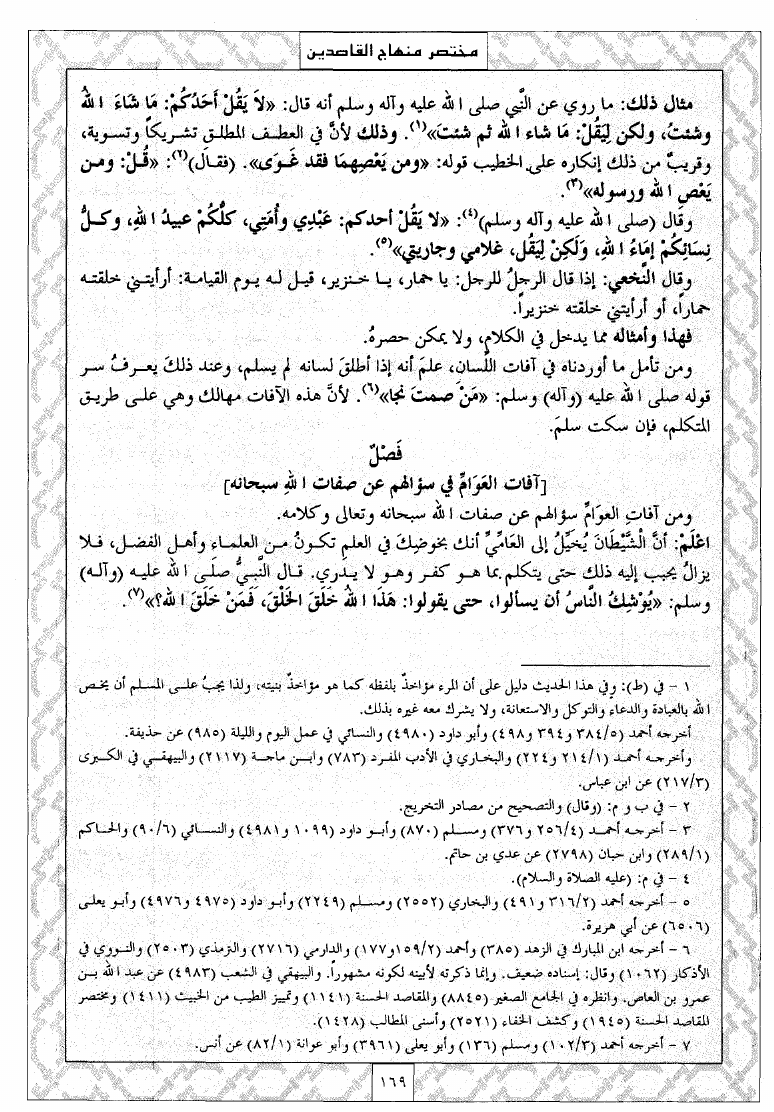 مختصر منهاج القاصدين
مثال ذلك: ما روي عن النَّبي صلى الله عليه وآله وسلم أنه قال: «لاَ يَقُلْ أَحَدُكُمْ: مَا شَاءَ اللهُ
وشئتُ، ولكن لِيَقُلْ: مَا شاء الله ثم شئتَ»(١). وذلك لأنَّ في العطف المطلق تشريكاً وتسوية،
وقريبٌ من ذلك إنكاره على الخطيب قوله: «ومن يَعْصِهِمَا فقد غَوَى». (فقال)(٢): «قُلْ: ومن
يَعْصِ الله ورسوله»(٣).
وقال (صلى الله عليه وآله وسلم)(٤): «لا يَقُلْ أحدكم: عَبْدِي وأُمَتِي، كلُّكُمْ عبيدُ اللهِ، وكلُّ
نِسَائِكُمْ إمَاءُ اللهِ، وَلَكِنْ لِيَقُل، غلامي وجاريتي»(٥).
وقال النَّخعي: إذا قال الرجلُ للرجل: يا حمار، يا خنزير، قيل له يوم القيامة: أرأيتني خلقته
حماراً، أو أرأيتني خلقته خنزيراً.
فهذا وأمثاله مما يدخل في الكلام، ولا يمكن حصرهُ.
ومن تأمل ما أوردناه في آفات اللِّسان، علمَ أنه إذا أطلقَ لسانه لم يسلم، وعند ذلكَ يعرفُ سر
قوله صلى الله عليه (وآله) وسلم: «مَنْ صمتَ نجا»(٦). لأنَّ هذه الآفات مهالك وهي على طريق
المتكلم، فإن سكت سلمَ.
فَصْلٌ
[آفات العَوَامِّ في سؤالهم عن صفات اللهِ سبحانه]
ومن آفاتِ العوَامِّ سؤالهم عن صفات الله سبحانه وتعالى وكلامه.
اعْلَمْ: أنَّ الشَّيْطَانَ يُخَيِّلُ إلى العَامِّيِّ أنك بخوضِكَ في العلم تكونُ من العلماء وأهل الفضل، فلا
يزالُ يحبب إليه ذلك حتى يتكلم بما هو كفر وهو لا يدري. قال النَّبيُّ صلَّى الله عليه (وآله)
وسلم: «يُوْشِكُ النَّاسُ أن يسألوا، حتى يقولوا: هَذَا اللهُ خَلَقَ الخَلْقَ، فَمَنْ خَلَقَ الله؟»(٧).
١ - في (ط): وفي هذا الحديث دليل على أن المرء مؤاخذٌ بلفظه كما هو مؤاخذٌ بنيته، ولذا يجبُ على المسلم أن يخص
الله بالعبادة والدعاء والتوكل والاستعانة، ولا يشرك معه غيره بذلك.
أخرجه أحمد (٣٨٤/٥ و٣٩٤ و٤٩٨) وأبو داود (٤٩٨٠) والنسائي في عمل اليوم والليلة (٩٨٥) عن حذيفة.
وأخرجه أحمد (٢١٤/١ و٢٢٤) والبخاري في الأدب المفرد (٧٨٣) وابن ماجة (٢١١٧) والبيهقي في الكبرى
(٢١٧/٣) عن ابن عباس.
٢ - في ب و م: (وقال) والتصحيح من مصادر التخريج.
٣ - أخرجه أحمد (٢٥٦/٤ و٣٧٦) ومسلم (٨٧٠) وأبو داود (١٠٩٩ و٤٩٨١) والنسائي (٩٠/٦) والحاكم
(٢٨٩/١) وابن حبان (٢٧٩٨) عن عدي بن حاتم.
٤ - في م: (عليه الصلاة والسلام).
٥ - أخرجه أحمد (٣١٦/٢ و٤٩١) والبخاري (٢٥٥٢) ومسلم (٢٢٤٩) وأبو داود (٤٩٧٥ و٤٩٧٦) وأبو يعلى
(٦٥٠٦) عن أبي هريرة.
٦ - أخرجه ابن المبارك في الزهد (٣٨٥) وأحمد (١٥٩/٢ و١٧٧) والدارمي (٢٧١٦) والترمذي (٢٥٠٣) والنووي في
الأذكار (١٠٦٢) وقال: إسناده ضعيف. وإنما ذكرته لأبينه لكونه مشهوراً. والبيهقي في الشعب (٤٩٨٣) عن عبد الله بن
عمرو بن العاص. وانظره في الجامع الصغير (٨٨٤٥) والمقاصد الحسنة (١١٤١) وتمييز الطيب من الخبيث (١٤١١) ومختصر
المقاصد الحسنة (١٩٤٥) وكشف الخفاء (٢٥٢١) وأسنى المطالب (١٤٢٨).
٧ - أخرجه أحمد (١٠٢/٣) ومسلم (١٣٦) وأبو يعلى (٣٩٦١) وأبو عوانة (٨٢/١) عن أنس.
١٦٩